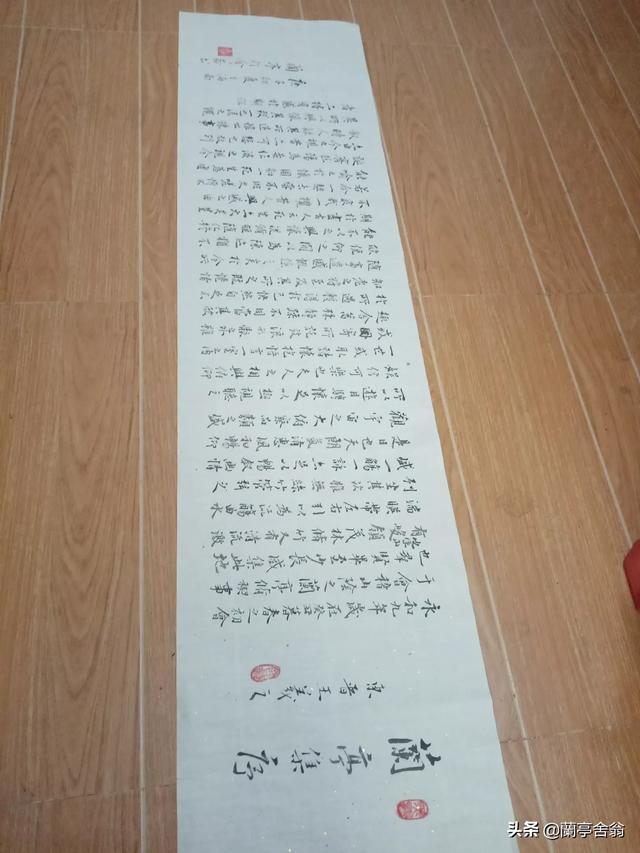 蘭亭集序
東晉王羲之
永和九年歲在癸丑暮春之初會
于會稽山陰之蘭亭脩禊事
也羣賢畢至少長咸集此地
有崇山峻領茂林脩竹又有清流激
湍暎帶左右引以為流觴曲水
列坐其次雖無絲竹管絃之
盛一觴一詠亦足以暢敘幽情
是日也天朗氣清惠風和暢仰
觀宇宙之大俯察品類之盛
所以遊目騁懷足以極視聽之
娛信可樂也夫人之相與俯仰
一世或取諸懷抱悟言一室之內
或因寄所託放浪形骸之外雖
趣舍萬殊靜躁不同當其欣
於所遇暫得於己快然自足不
知老之將至及其所之既惓情
隨事遷感慨係之矣向之所
欣俛仰之間以為陳迹猶不
能不以之興懷況脩短隨化終
期於盡古人云死生亦大矣豈
不痛哉每攬昔人興感之由
若合一契未嘗不臨文嗟悼不
能喻之於懷固知一死生為虛
誕齊彭殤為妄作後之視今
头条 @蘭亭舍翁